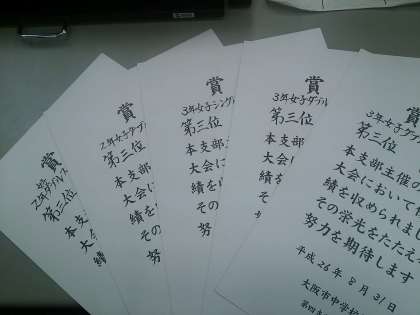 賞
第三位
本
大
績
賞
2年女子ダブ
第三位
本支部
大会に
績を
その
努
賞
3年女子シングル
第三位
本支部主
大会に
績を
その
努
賞
3年女子ダブル
第三位
本支部
大会
績
そ
賞
3年女子ダ
第三位
本支部主催の
大会において
績を収められまし
その栄光をたたえ
努力を期待します
平成26年8月31日
大阪市中学校
第四